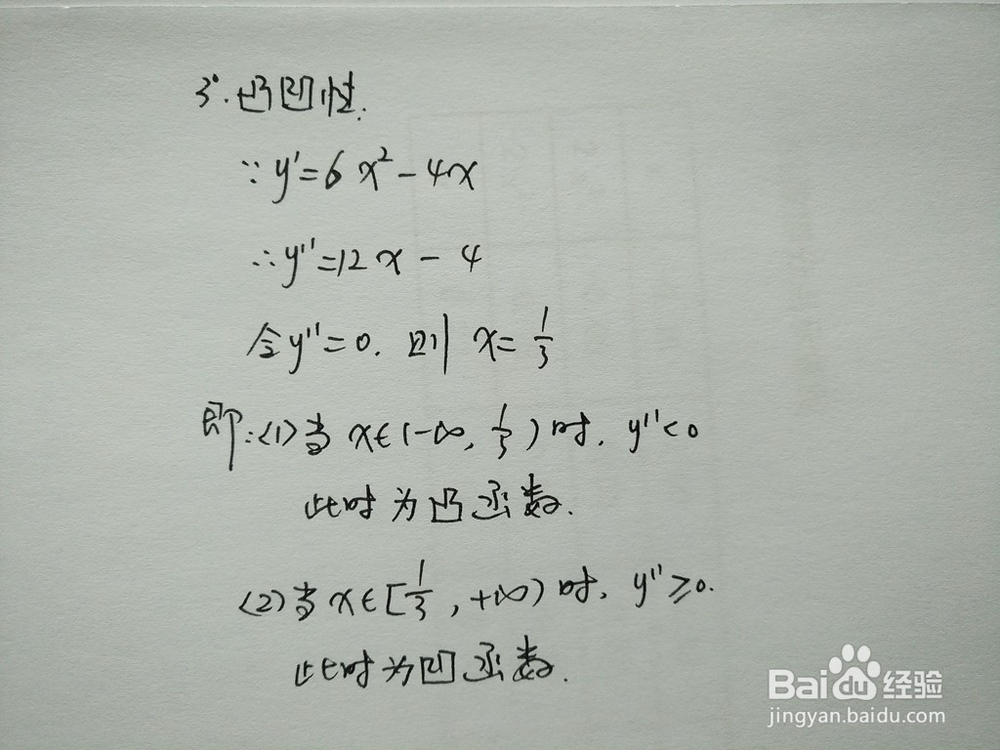 3°.凸凹性.
∵y'=6x²-4x
∴y''=12x-4
令y''=0.则x=1/3
即:(1)当x∈(-∞,1/3)时,y''<0
此时为凸函数.
(2)当x∈[1/3,+∞)时,y''≥0.
此时为凹函数.
Baidu经验
jingyan.baidu.com